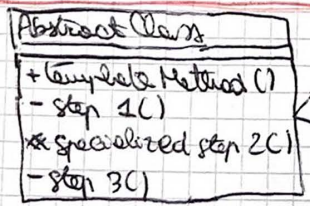 Abstract Class
+ template Method ()
- step 1()
* specialized step 2()
- step 3()